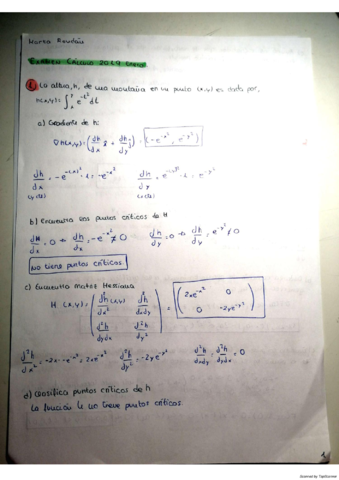 Marta Roudán
EXAMEN CÁLCULO 2019 ENERO
1. La altura, h, de una montaña en un punto (x,y) es dada por,
h(x,y) = ∫ₓʸ e^{-t²} dt
a) Gradiente de h:
∇h(x,y) = (dh/dx i + dh/dy j) = (-e^{-x²}, e^{-y²})
dh/dx = -e^{-(x)²}·1 = -e^{-x²} dh/dy = e^{-(y)²}·1 = e^{-y²}
b) Encuentra los puntos críticos de H
dH/dx = 0 → dh/dx = -e^{-x²} ≠ 0 dh/dy = 0 → dh/dy = e^{-y²} ≠ 0
No tiene puntos críticos.
c) Encuentra Matriz Hessiana
H(x,y) = (d²h/dx² d²h/dxdy d²h/dydx d²h/dy²) = (2xe^{-x²} 0 0 -2ye^{-y²})
d²h/dx² = -2x·-e^{-x²} = 2xe^{-x²} d²h/dy² = -2ye^{-y²} d²h/dxdy = d²h/dydx = 0
d) Clasifica puntos críticos de h
La función h no tiene puntos críticos.
1
Scanned by TapScanner